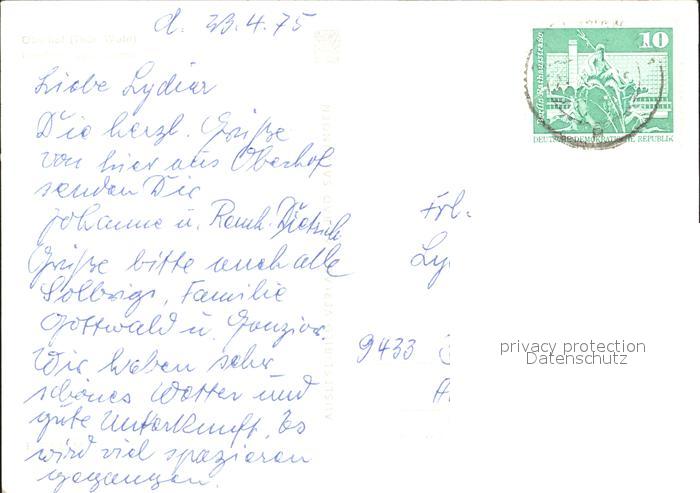 d. 23.4.75
Liebe Lydia
Die herzl. Grüße
von hier aus Oberhof
senden Die
Johanna u. Reinh. Dietrich
Grüße bitte auch alle
Solbrigs, Familie
Gottwald u.
Wir haben sehr
schönes Wetter und
gute Unterkunft. Es
wird viel spazieren
gegangen.
Berlin-Rathausstraße
10
DEUTSCHE DEMOKRATISCHE REPUBLIK
Frl.
Ly
9433
privacy protection
Datenschutz